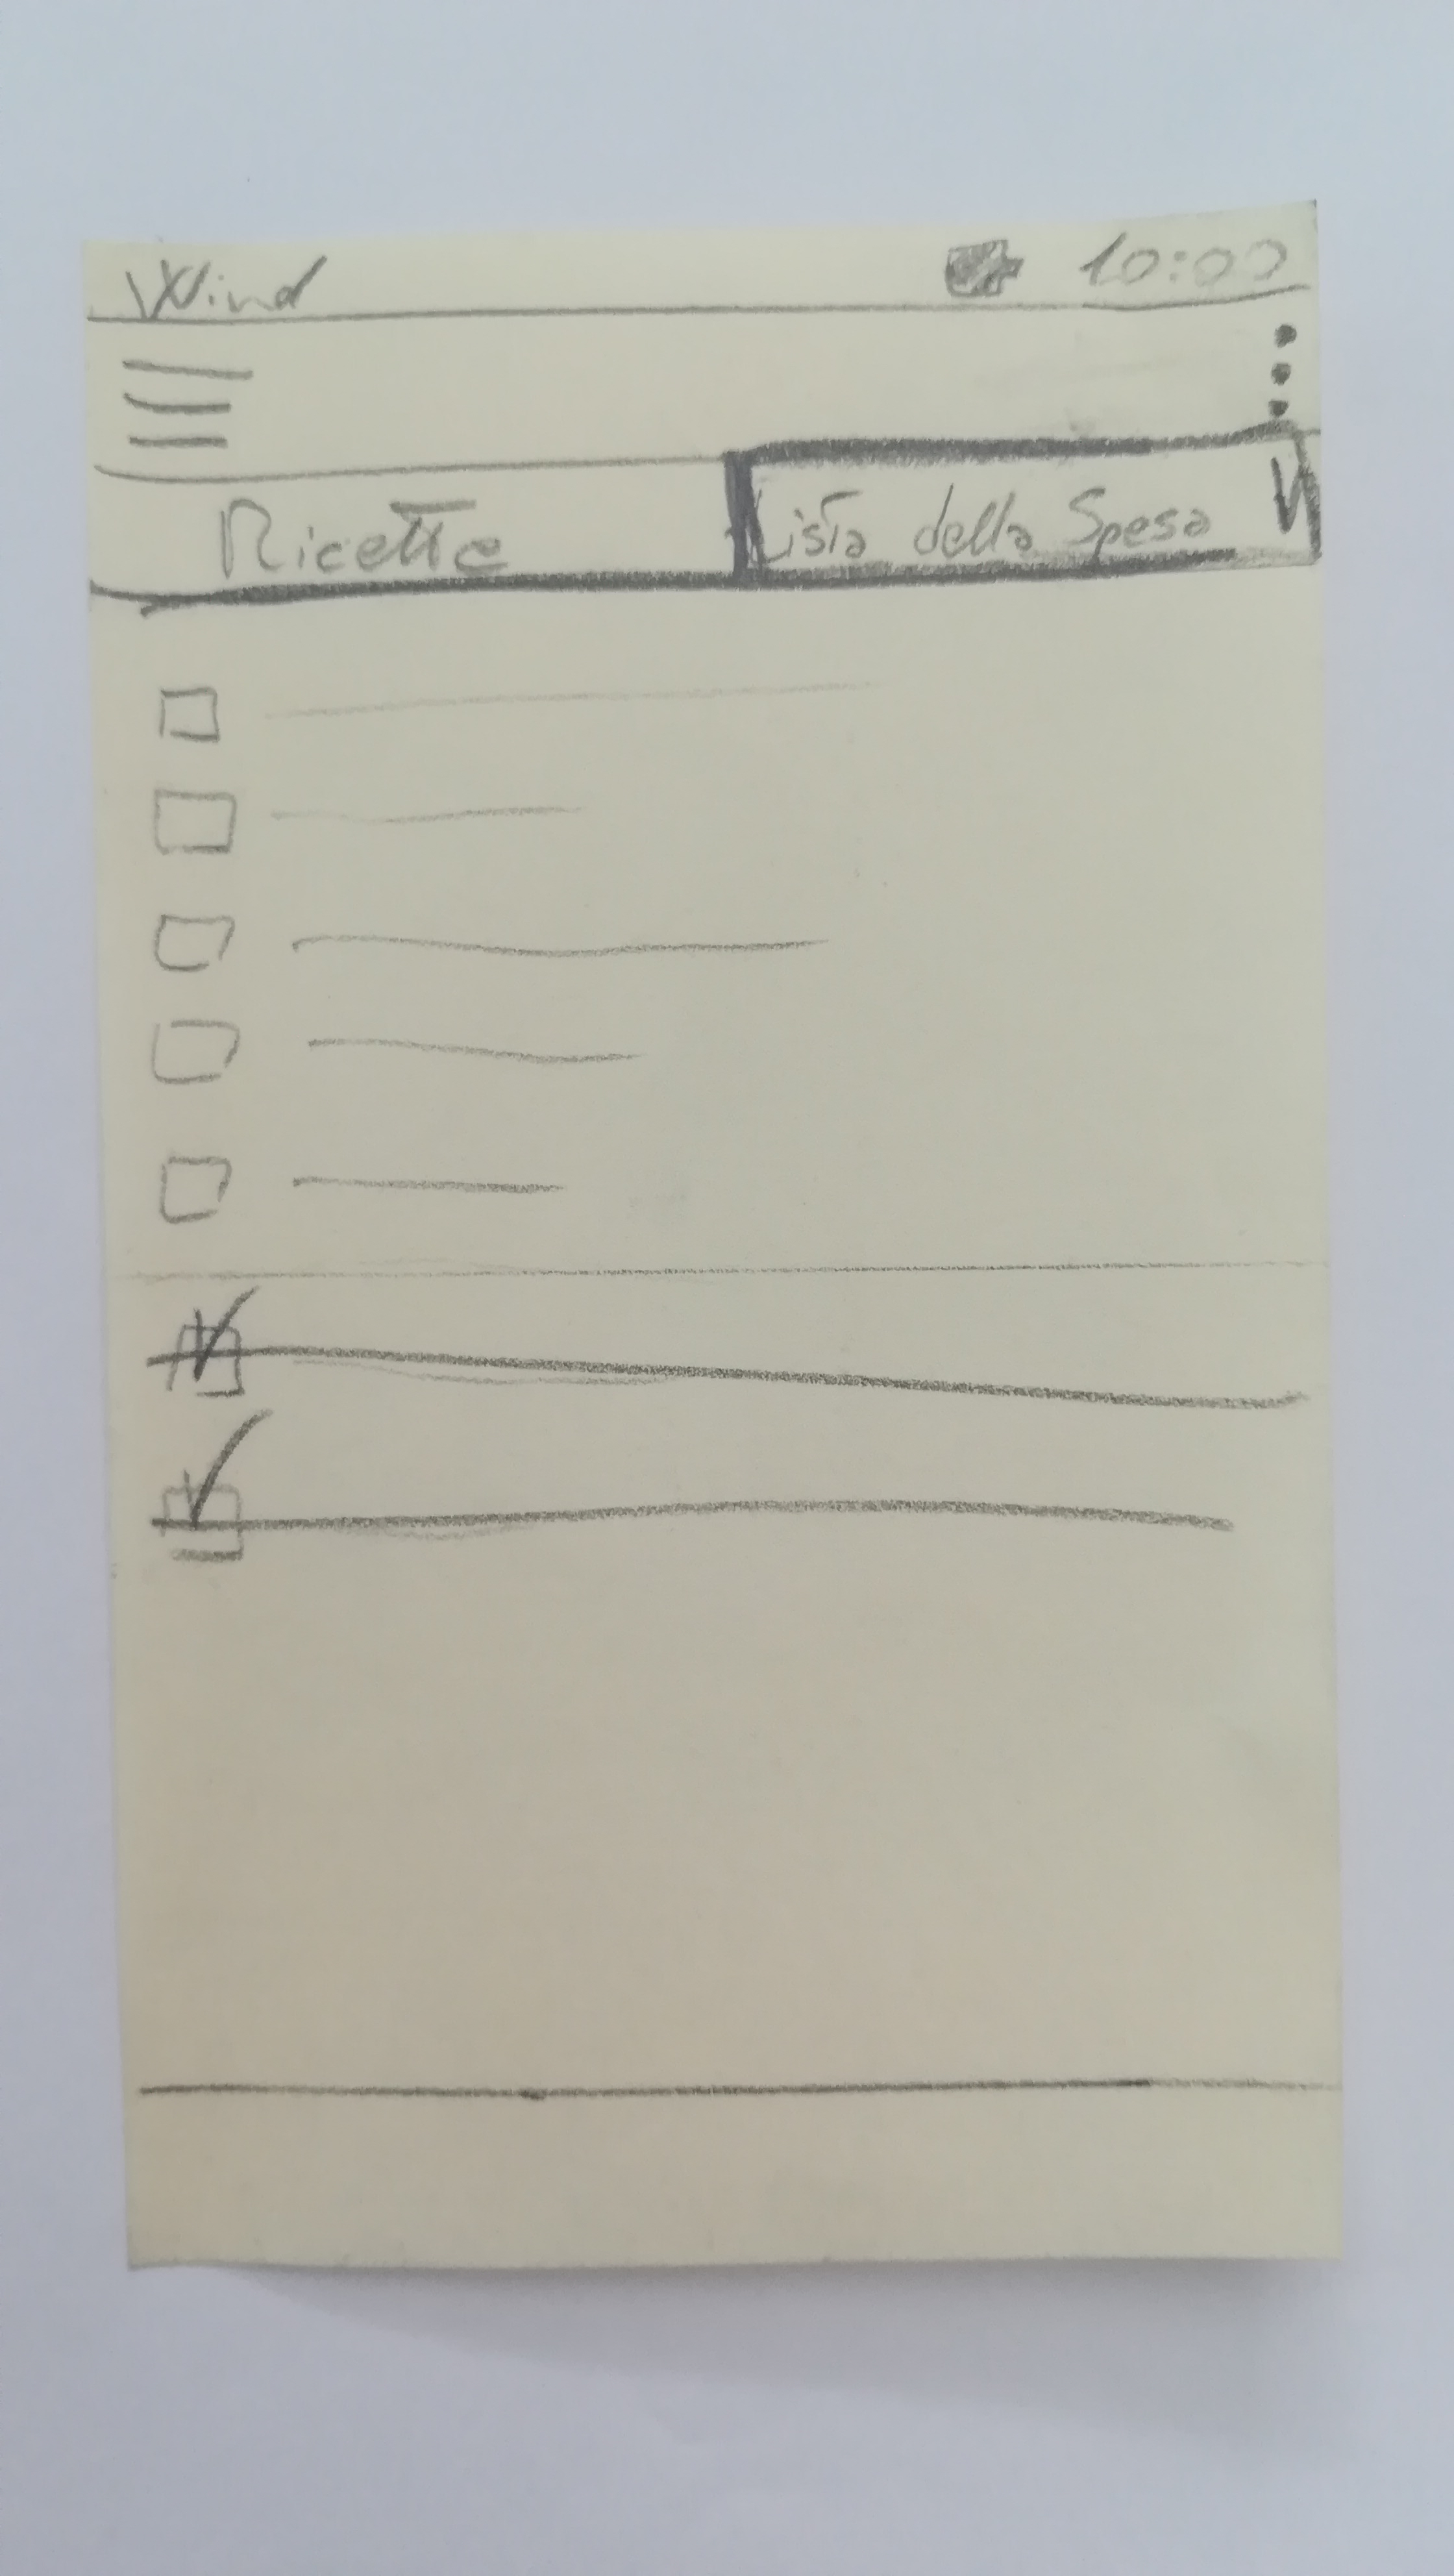 Wind 10:00
Ricette Lista della Spesa